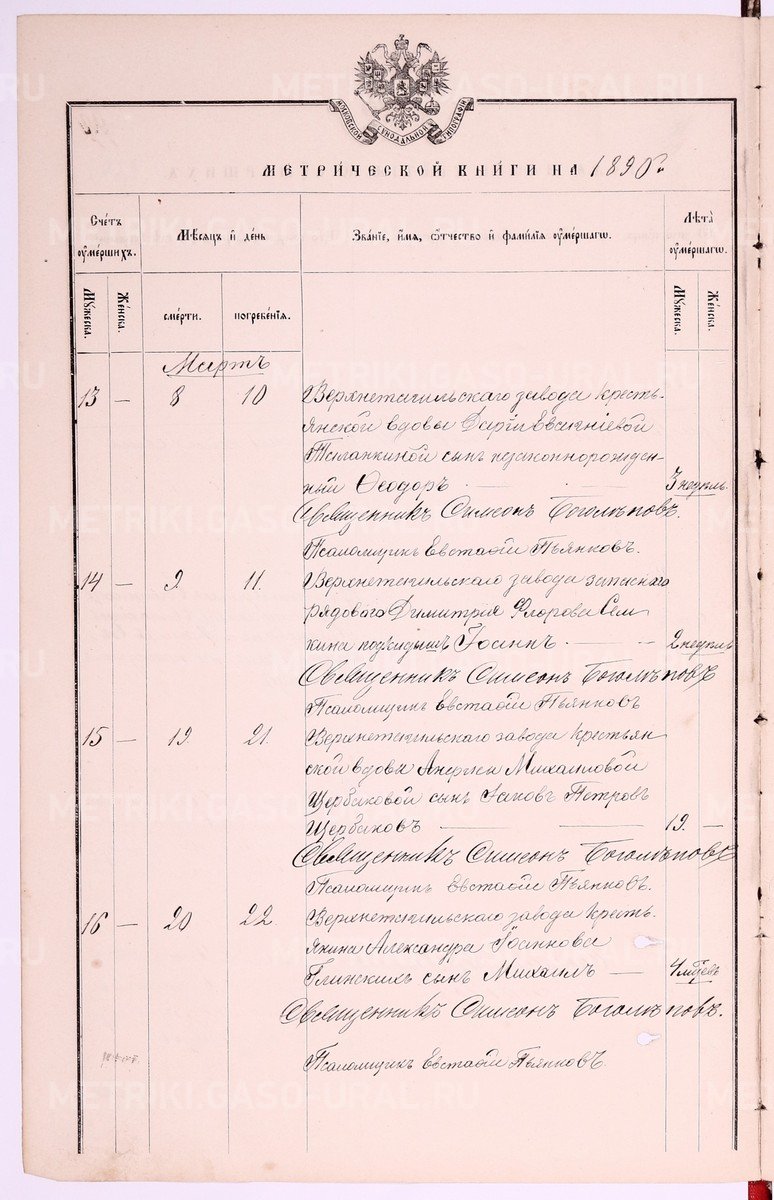 МОСКОВСКОЙ СѴНОДАЛЬНОЙ ТИПОГРАФІИ
МЕТРИ́ЧЕСКОЙ КНИ́ГИ НА 1890 г.
Сче́тъ ᲂу҆ме́ршихъ.
Мѣ́сѧцъ и҆ де́нь
Зва́нїе, и҆́мѧ, ѻ҆́тчество и҆ фами́лїѧ ᲂу҆ме́ршагѡ.
Лѣта̀ ᲂу҆ме́ршагѡ.
Мꙋ́жеска. Же́нска. сме́рти. погребе́нїѧ. Мꙋ́жеска. Же́нска.
Мартъ
13 — 8 10 Верхнетагильскаго завода кресть-
янской вдовы Даріи Евгніевой
Талапкиной сынъ незаконнорожден-
ный Ѳеодоръ — 3 недѣль
Священникъ Симеонъ Боголѣповъ.
Псаломщикъ Евстафій Пьянковъ.
14 — 9 11. Верхнетагильскаго завода запаснаго
рядоваго Димитрія Флорова Сем-
кина подкидышъ Іоаннъ — 2 недѣль
Священникъ Симеонъ Боголѣповъ
Псаломщикъ Евстафій Пьянковъ
15 — 19. 21. Верхнетагильскаго завода крестьян
ской вдовы Михаиловой
Щербаковой сынъ Іаковъ Петровъ
Щербаковъ — 19. —
Священникъ Симеонъ Боголѣповъ
Псаломщикъ Евстафій Пьянковъ.
16 — 20 22. Верхнетагильскаго завода кресть-
янина Александра Іоаннова
Глинскихъ сынъ Михаилъ — 4 мѣсяц.
Священникъ Симеонъ Боголѣповъ.
Псаломщикъ Евстафій Пьянковъ.
METRIKI.GASO-URAL.RU